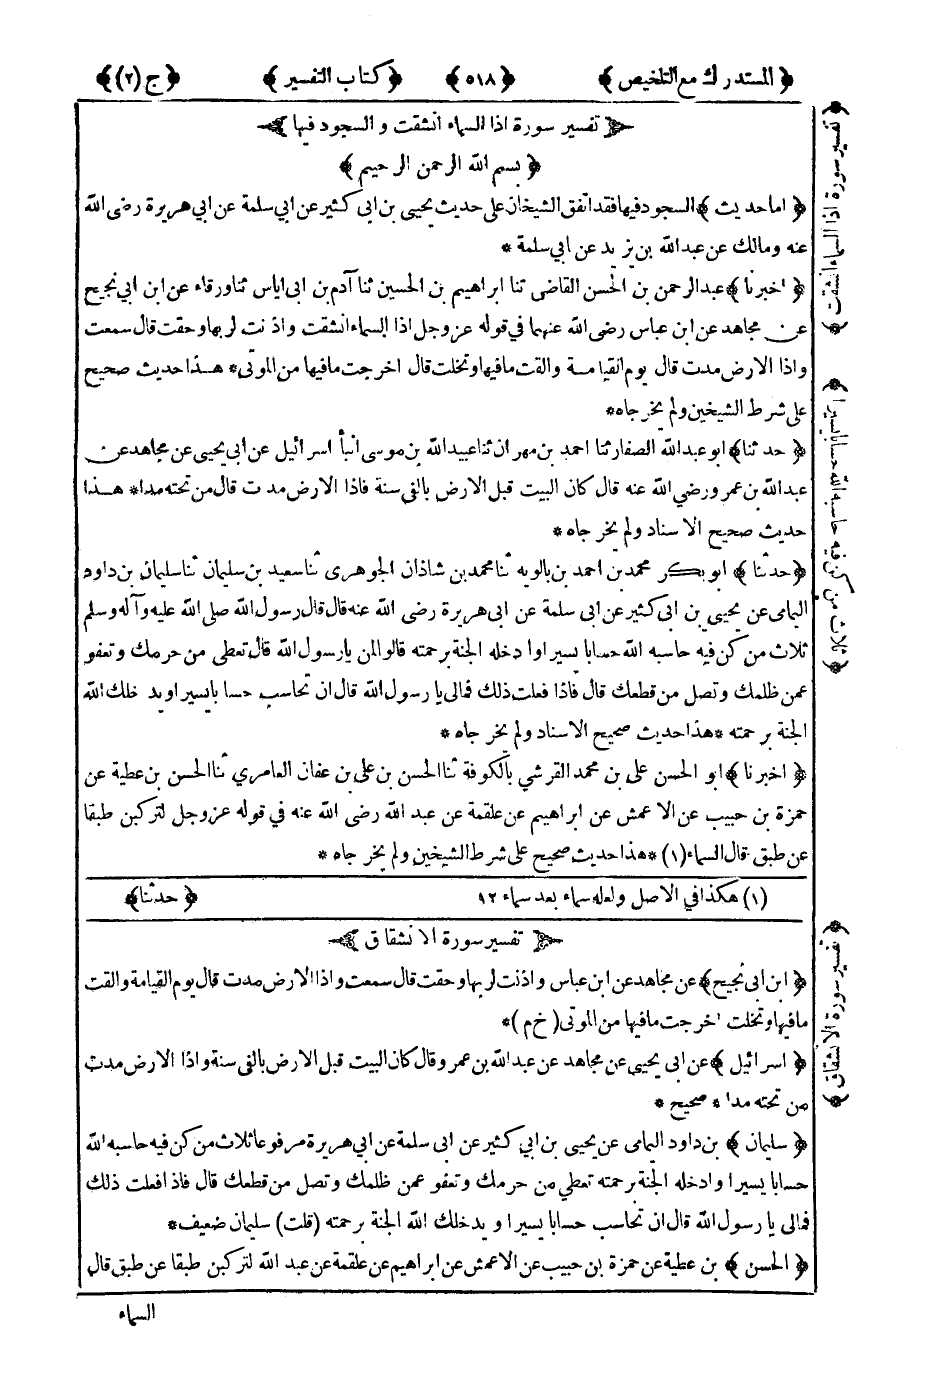 ﴿ المستدرك مع التلخيص ﴾ ﴿ ٥١٨ ﴾ ﴿ كتاب التفسير ﴾ ﴿ ج (٢) ﴾
تفسير سورة اذا السماء انشقت و السجود فيها
﴿ بسم الله الرحمن الرحيم ﴾
﴿ اما حديث ﴾ السجود فيها فقد اتفق الشيخان على حديث يحيى بن ابى كثير عن ابي سلمة عن ابي هريرة رضى الله
عنه ومالك عن عبد الله بن يزيد عن ابي سلمة *
﴿ اخبرنا ﴾ عبد الرحمن بن الحسن القاضى ثنا ابراهيم بن الحسين ثنا آدم بن ابى اياس ثنا ورقاء عن ابن ابي نجيح
عن مجاهد عن ابن عباس رضى الله عنهما في قوله عز وجل اذا السماء انشقت واذنت لربها وحقت قال سمعت
واذا الارض مدت قال يوم القيامة والقت ما فيها وتخلت قال اخرجت ما فيها من الموتى * هذا حديث صحيح
على شرط الشيخين ولم يخرجاه *
﴿ حدثنا ﴾ ابو عبد الله الصفار ثنا احمد بن مهران ثنا عبيد الله بن موسى انبأ اسرائيل عن ابي يحيى عن مجاهد عن
عبد الله بن عمر ورضي الله عنه قال كان البيت قبل الارض بالفى سنة فاذا الارض مدت قال من تحته مدا * هذا
حديث صحيح الاسناد ولم يخرجاه *
﴿ حدثنا ﴾ ابو بكر محمد بن احمد بن بالويه ثنا محمد بن شاذان الجوهرى ثنا سعيد بن سليمان ثنا سليمان بن داود
اليمامى عن يحيى بن ابى كثير عن ابى سلمة عن ابى هريرة رضى الله عنه قال قال رسول الله صلى الله عليه وآله وسلم
ثلاث من كن فيه حاسبه الله حسابا يسيرا وادخله الجنة برحمته قالوا لمن يا رسول الله قال تعطى من حرمك وتعفو
عمن ظلمك وتصل من قطعك قال فاذا فعلت ذلك فمالى يا رسول الله قال ان تحاسب حسابا يسيرا ويدخلك الله
الجنة برحمته * هذا حديث صحيح الاسناد ولم يخرجاه *
﴿ اخبرنا ﴾ ابو الحسن على بن محمد القرشي بالكوفة ثنا الحسن بن على بن عفان العامري ثنا الحسن بن عطية عن
حمزة بن حبيب عن الاعمش عن ابراهيم عن علقمة عن عبد الله رضى الله عنه في قوله عز وجل لتركبن طبقا
عن طبق قال السماء (١) * هذا حديث صحيح على شرط الشيخين ولم يخرجاه *
(١) هكذا في الاصل ولعله سماء بعد سماء ١٢ ﴿ حدثنا ﴾
تفسير سورة الانشقاق
﴿ ابن ابى نجيح ﴾ عن مجاهد عن ابن عباس واذنت لربها وحقت قال سمعت واذا الارض مدت قال يوم القيامة والقت
ما فيها وتخلت اخرجت ما فيها من الموتى (خ م) *
﴿ اسرائيل ﴾ عن ابى يحيى عن مجاهد عن عبد الله بن عمر وقال كان البيت قبل الارض بالفى سنة واذا الارض مدت
من تحته مدا * صحيح *
﴿ سليمان ﴾ بن داود اليمامى عن يحيى بن ابي كثير عن ابى سلمة عن ابي هريرة مرفوعا ثلاث من كن فيه حاسبه الله
حسابا يسيرا وادخله الجنة برحمته تعطي من حرمك وتعفو عمن ظلمك وتصل من قطعك قال فاذا فعلت ذلك
فمالى يا رسول الله قال ان تحاسب حسابا يسيرا ويدخلك الله الجنة برحمته (قلت) سليمان ضعيف *
﴿ الحسن ﴾ بن عطية عن حمزة بن حبيب عن الاعمش عن ابراهيم عن علقمة عن عبد الله لتركبن طبقا عن طبق قال
السماء
﴿ تفسير سورة اذا السماء انشقت ﴾
﴿ ثلاث من كن فيه حاسبه الله حسابا يسيرا ﴾
﴿ تفسير سورة الانشقاق ﴾